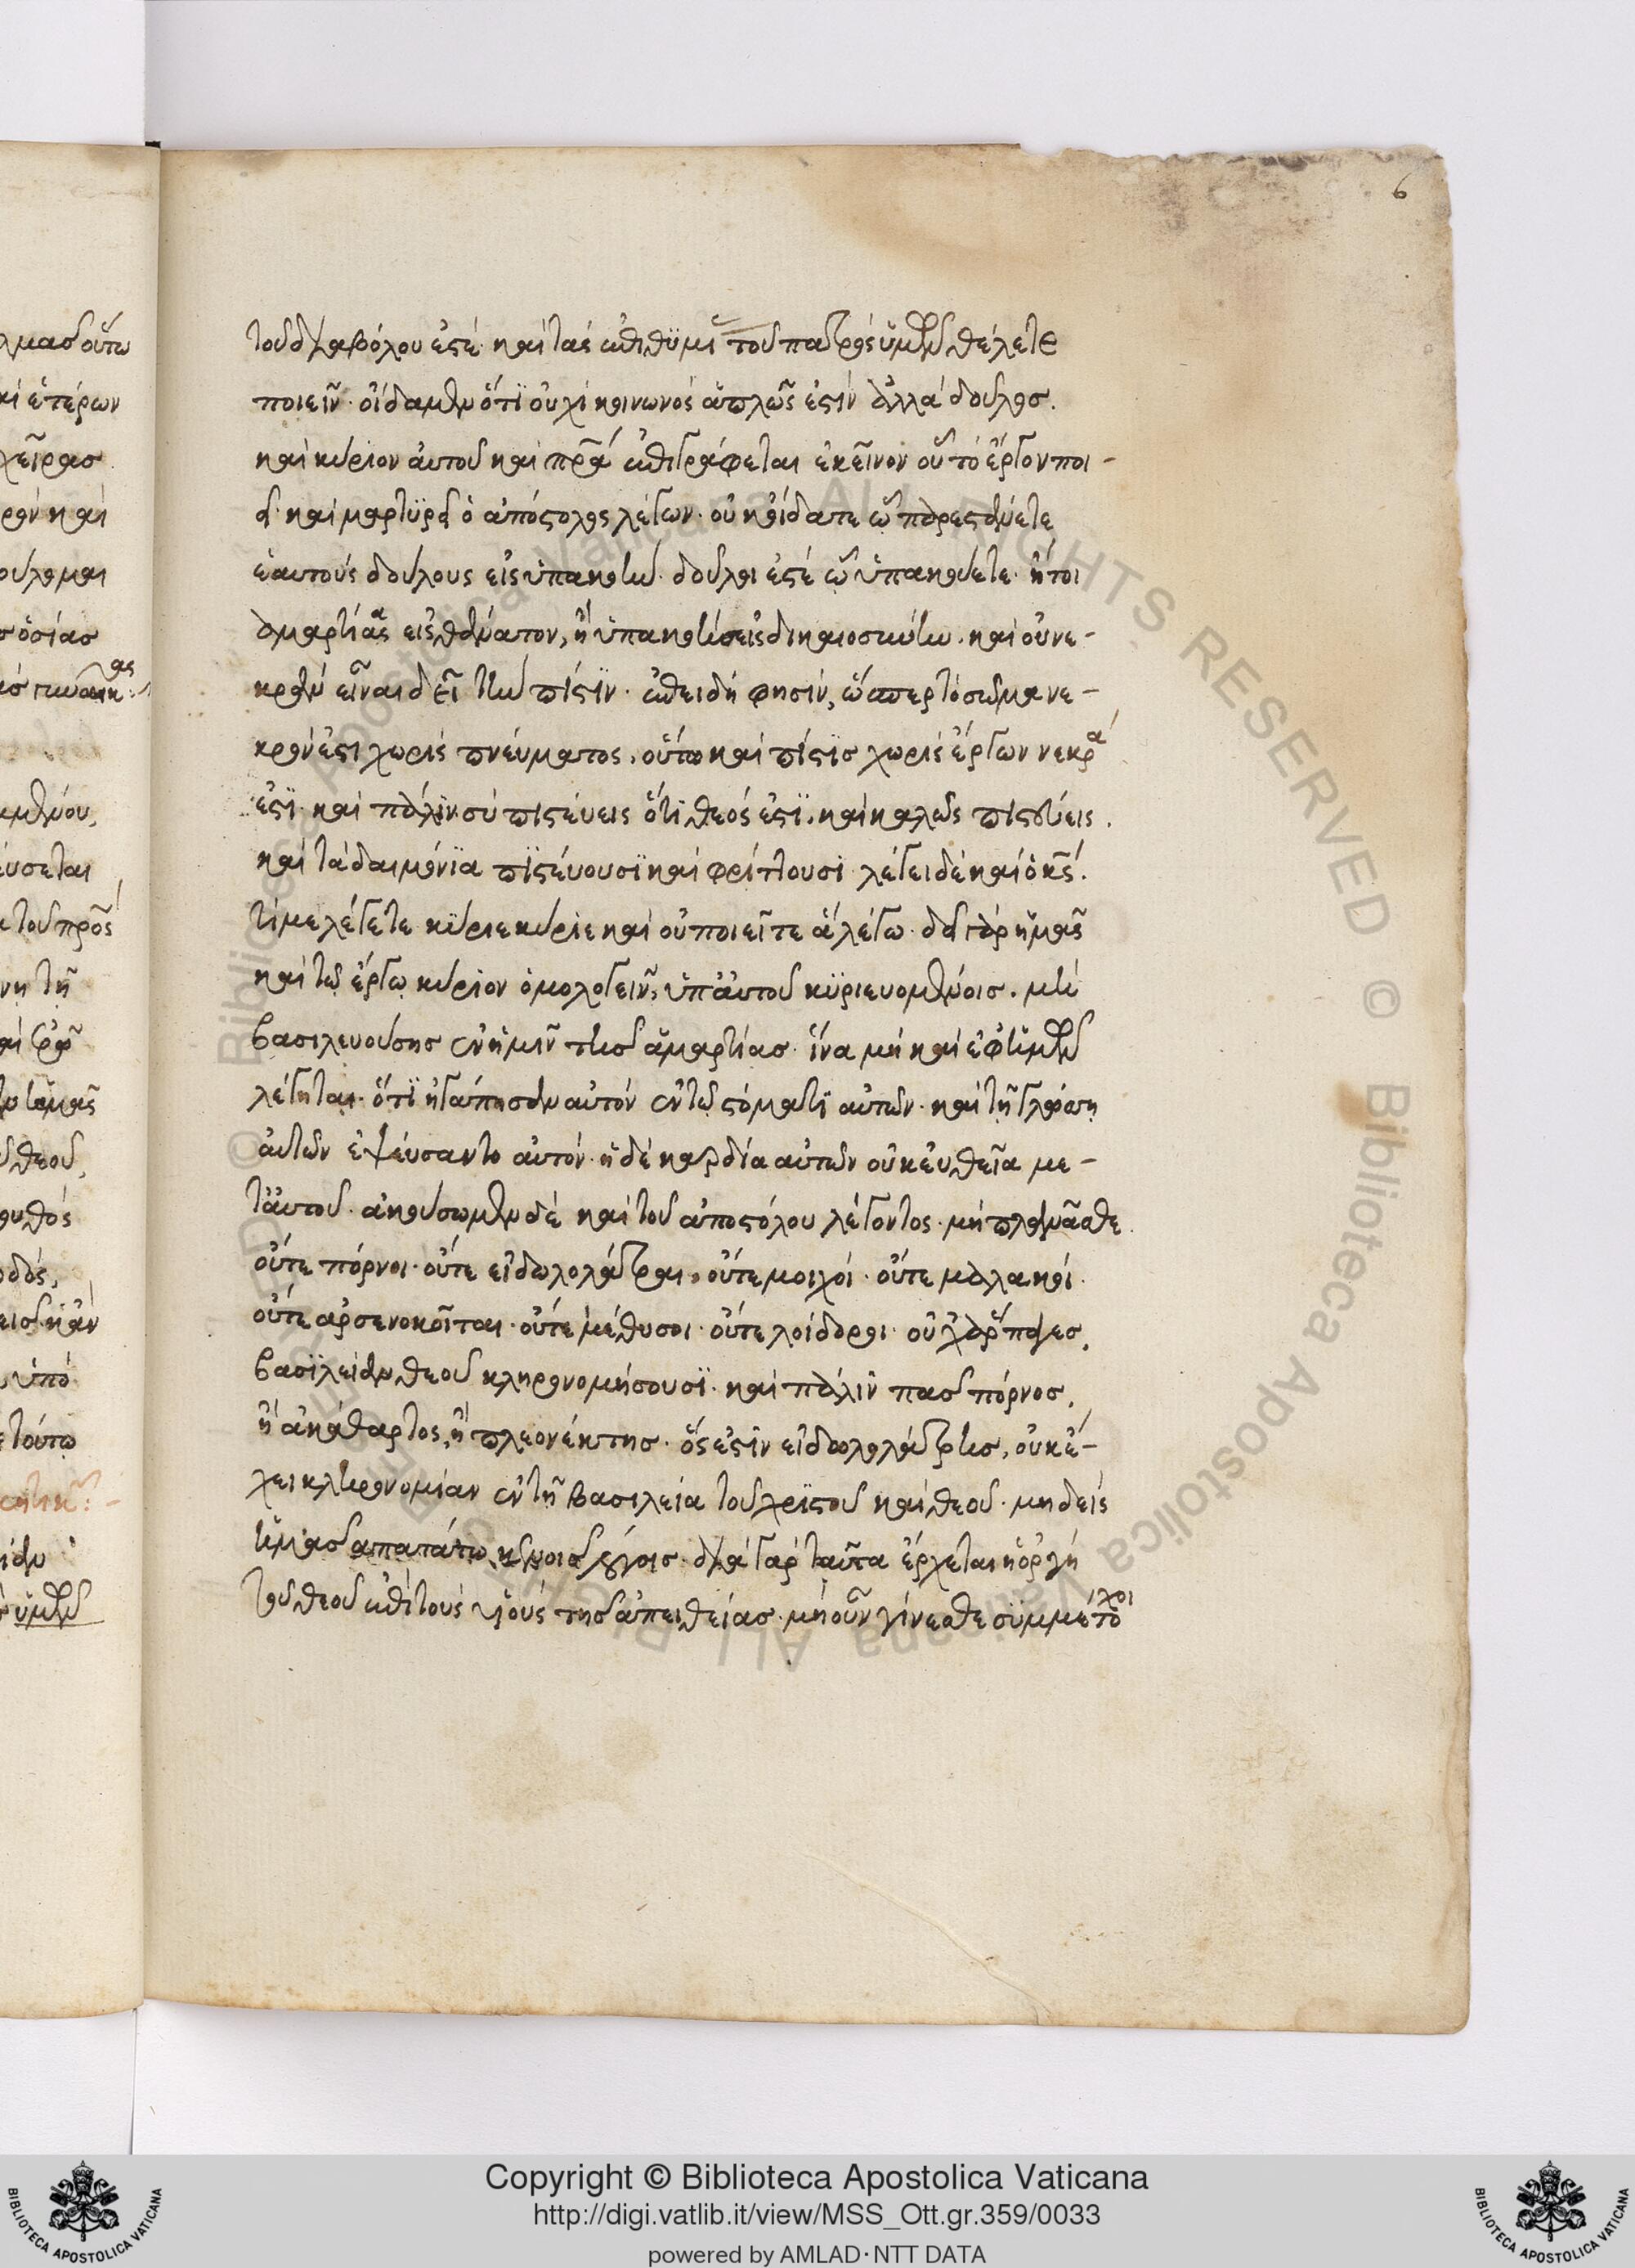 6
τοῦ διαβόλου ἐστέ· καὶ τὰς ἐπιθυμί τοῦ πατρὸς ὑμῶν θέλετε
ποιεῖν· οἴδαμεν ὅτι οὐχὶ κοινωνὸς ἁπλῶς ἐστὶν ἀλλὰ δοῦλος.
καὶ κύριον αὐτοῦ καὶ πρᾱ́ ἐπιγράφεται ἐκεῖνον οὗ τὸ ἔργον ποι-
εῖ· καὶ μαρτυρεῖ ὁ ἀπόστολος λέγων· οὐκ οἴδατε ᾧ παρεστάνετε
ἑαυτοὺς δούλους εἰς ὑπακοὴν· δοῦλοι ἐστέ ᾧ ὑπακούετε· ἤτοι
ἁμαρτίας εἰς θάνατον, ἢ ὑπακοῆς εἰς δικαιοσύνην. καὶ οὐ νε-
κρὰν εἶναι δεῖ τὴν πίστιν· ἐπειδή φησιν, ὥσπερ τὸ σῶμα νε-
κρόν ἐστι χωρὶς πνεύματος, οὕτω καὶ πίστις χωρὶς ἔργων νεκρὰ
ἐστι· καὶ πάλιν σὺ πιστεύεις ὅτι θεός ἐστι. καὶ καλῶς πιστεύεις.
καὶ τὰ δαιμόνια πιστεύουσι καὶ φρίττουσι· λέγει δὲ καὶ ὁ κς̄.
τί με λέγετε κύριε κύριε καὶ οὐ ποιεῖτε ἃ λέγω· δεῖ γὰρ ἡμᾶς
καὶ τῷ ἔργῳ κύριον ὁμολογεῖν, ὑπ' αὐτοῦ κυριευομένοις. μὴ
βασιλευούσης ἐν ἡμῖν τῆς ἁμαρτίας· ἵνα μὴ καὶ ἐφ' ἡμῶν
λέγηται· ὅτι ἠγάπησαν αὐτὸν ἐν τῷ στόματι αὐτῶν· καὶ τῇ γλώσσῃ
αὐτῶν ἐψεύσαντο αὐτόν· ἡ δὲ καρδία αὐτῶν οὐκ εὐθεῖα με-
τ' αὐτοῦ· ἀκούσωμεν δὲ καὶ τοῦ ἀποστόλου λέγοντος· μὴ πλανᾶσθε
οὔτε πόρνοι· οὔτε εἰδωλολάτραι, οὔτε μοιχοί· οὔτε μαλακοί·
οὔτε ἀρσενοκοῖται· οὔτε μέθυσοι· οὔτε λοίδοροι· οὐχ ἅρπαγες,
βασιλείαν θεοῦ κληρονομήσουσι· καὶ πάλιν πᾶς πόρνος,
ἢ ἀκάθαρτος, ἢ πλεονέκτης· ὅς ἐστὶν εἰδωλολάτρης, οὐκ ἔ-
χει κληρονομίαν ἐν τῇ βασιλεία τοῦ χριστοῦ καὶ θεοῦ· μηδεὶς
ὑμᾶς ἀπατάτω κενοῖς λόγοις· διὰ γὰρ ταῦτα ἔρχεται ἡ ὀργὴ
τοῦ θεοῦ ἐπὶ τοὺς υἱοὺς τῆς ἀπειθείας· μὴ οὖν γίνεσθε συμμέτοχοι
Copyright © Biblioteca Apostolica Vaticana
http://digi.vatlib.it/view/MSS_Ott.gr.359/0033
powered by AMLAD·NTT DATA